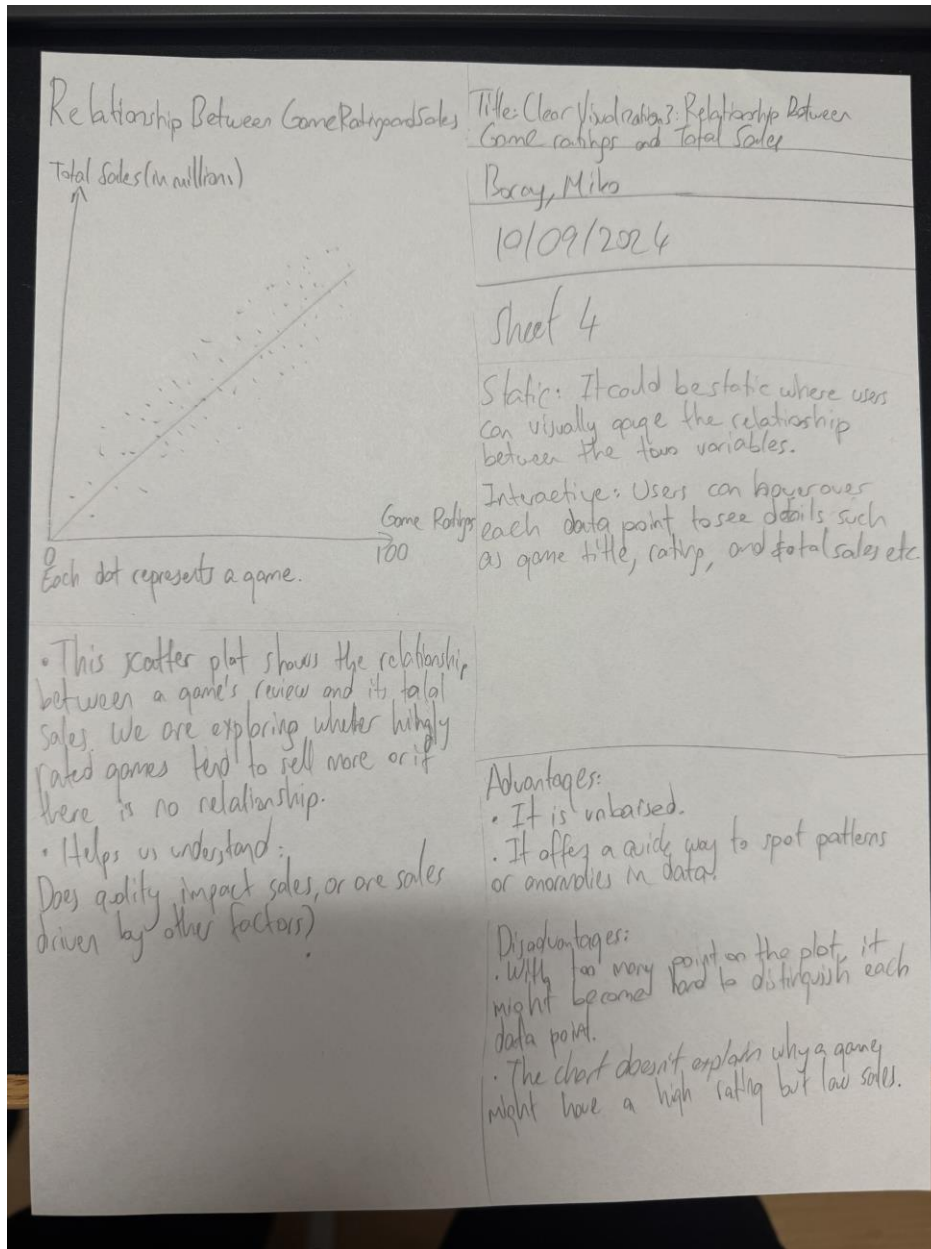 Relationship Between Game Ratings and Sales
Total Sales (in millions)
Game Ratings
0
100
Each dot represents a game.
• This scatter plot shows the relationship
between a game's review and its talal
sales. We are exploring wheter hihgly
rated games tend to sell more or if
there is no relationship.
• Helps us understand:
Does quality impact sales, or are sales
driven by other factors)
Title: Clear Visualization3: Relationship Between
Game ratings and Total Sales
Miko
10/09/2024
Sheet 4
Static: It could be static where users
can visually gage the relatioship
between the two variables.
Interactive: Users can hover over
each data point to see details such
as game title, rating, and total sales etc.
Advantages:
• It is unbaised.
• It offers a quick way to spot patterns
or anomolies in data.
Disadvantages:
• With too many point on the plot, it
might become hard to distinguish each
data point.
• The chart doesn't explain why a game
might have a high rating but low sales.